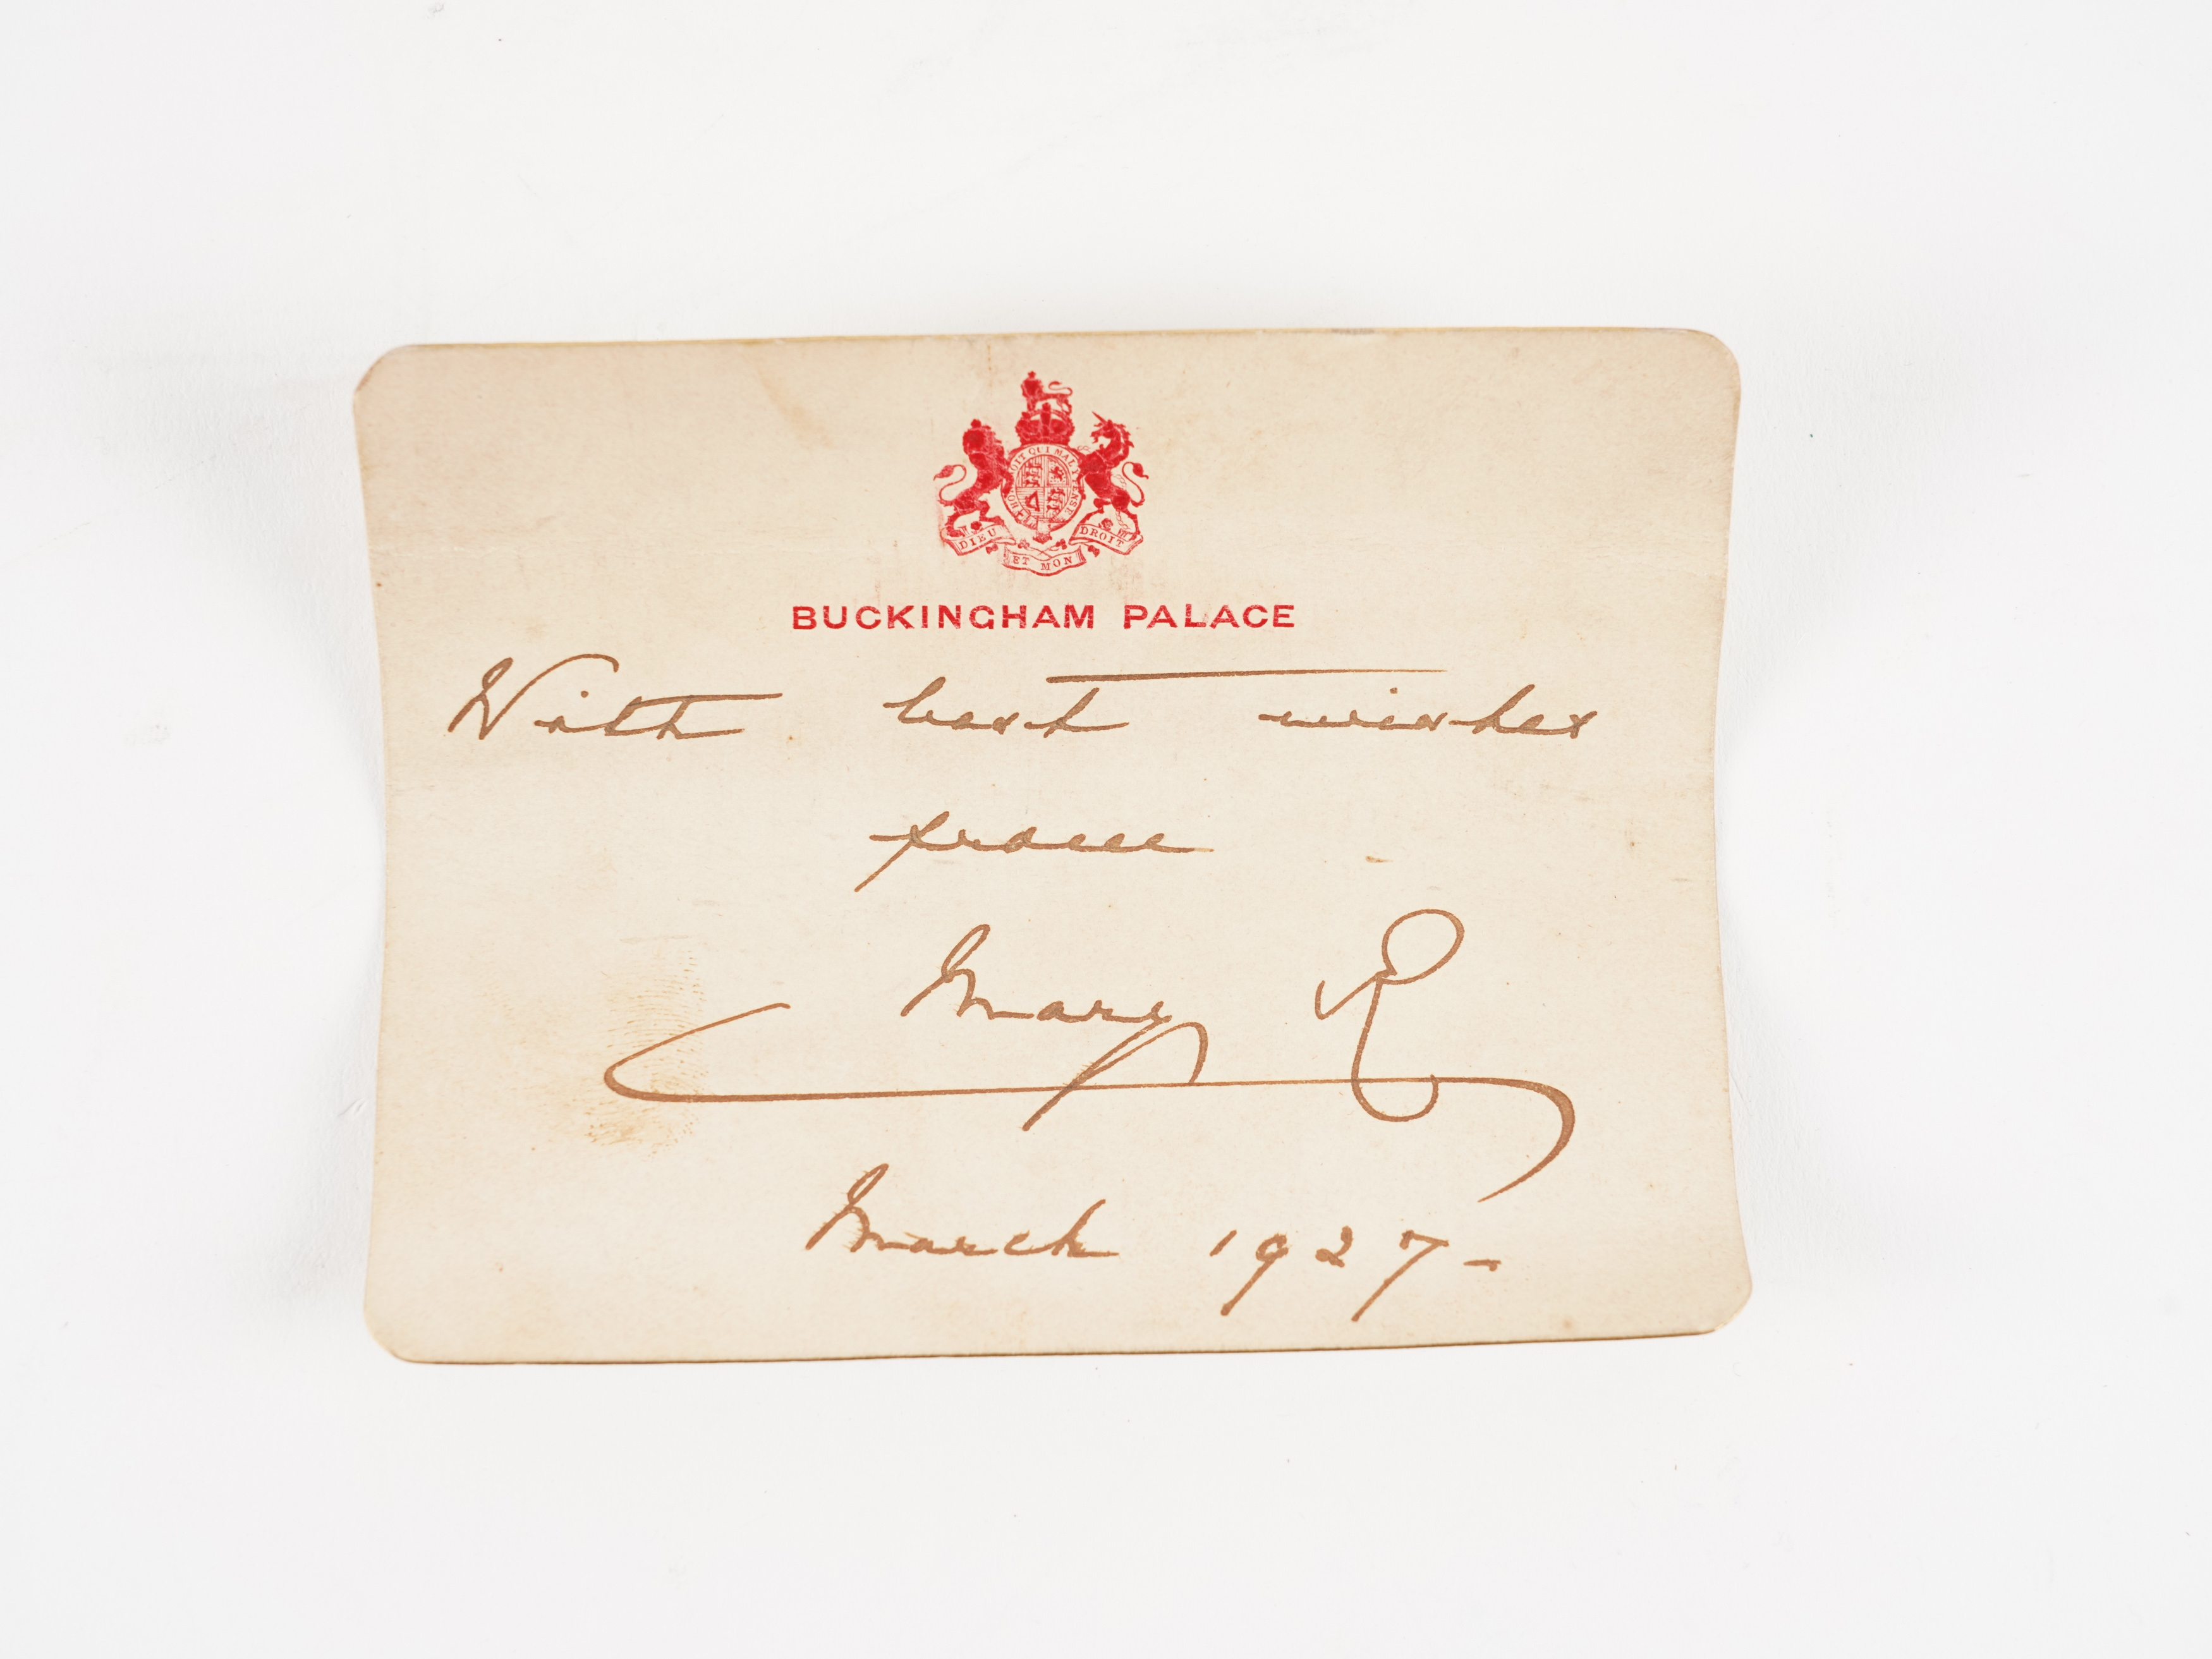 HONI SOIT QUI MAL Y PENSE
DIEU ET MON DROIT
BUCKINGHAM PALACE
With best wishes
from
Mary R
March 1927-